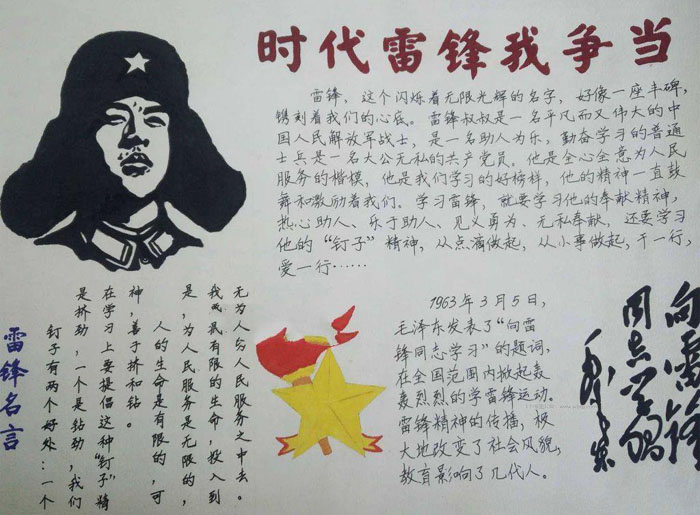 时代雷锋我争当
雷锋，这个闪烁着无限光辉的名字，好像一座丰碑，
镌刻着我们的心底。雷锋叔叔是一名平凡而又伟大的中
国人民解放军战士，是一名助人为乐，勤奋学习的普通
士兵是一名大公无私的共产党员。他是全心全意为人民
服务的楷模，他是我们学习的好榜样，他的精神一直鼓
舞和激励着我们、学习雷锋，就要学习他的奉献精神，
热心助人、乐于助人、见义勇为、无私奉献，还要学习
他的“钉子”精神，从点滴做起，从小事做起，干一行，
爱一行……
雷锋名言
钉子有两个好处：一个
是挤劲，一个是钻劲，我们
在学习上要提倡这种“钉子”精
神，善于挤和钻。
人的生命是有限的，可
是，为人民服务是无限的，
我有限的生命，投入到
无为人民服务之中去。
1963年3月5日，
毛泽东发表了“向雷
锋同志学习”的题词，
在全国范围内掀起轰
轰烈烈的学雷锋运动。
雷锋精神的传播，极
大地改变了社会风貌，
教育影响了几代人。
向雷锋
同志学习
毛泽东